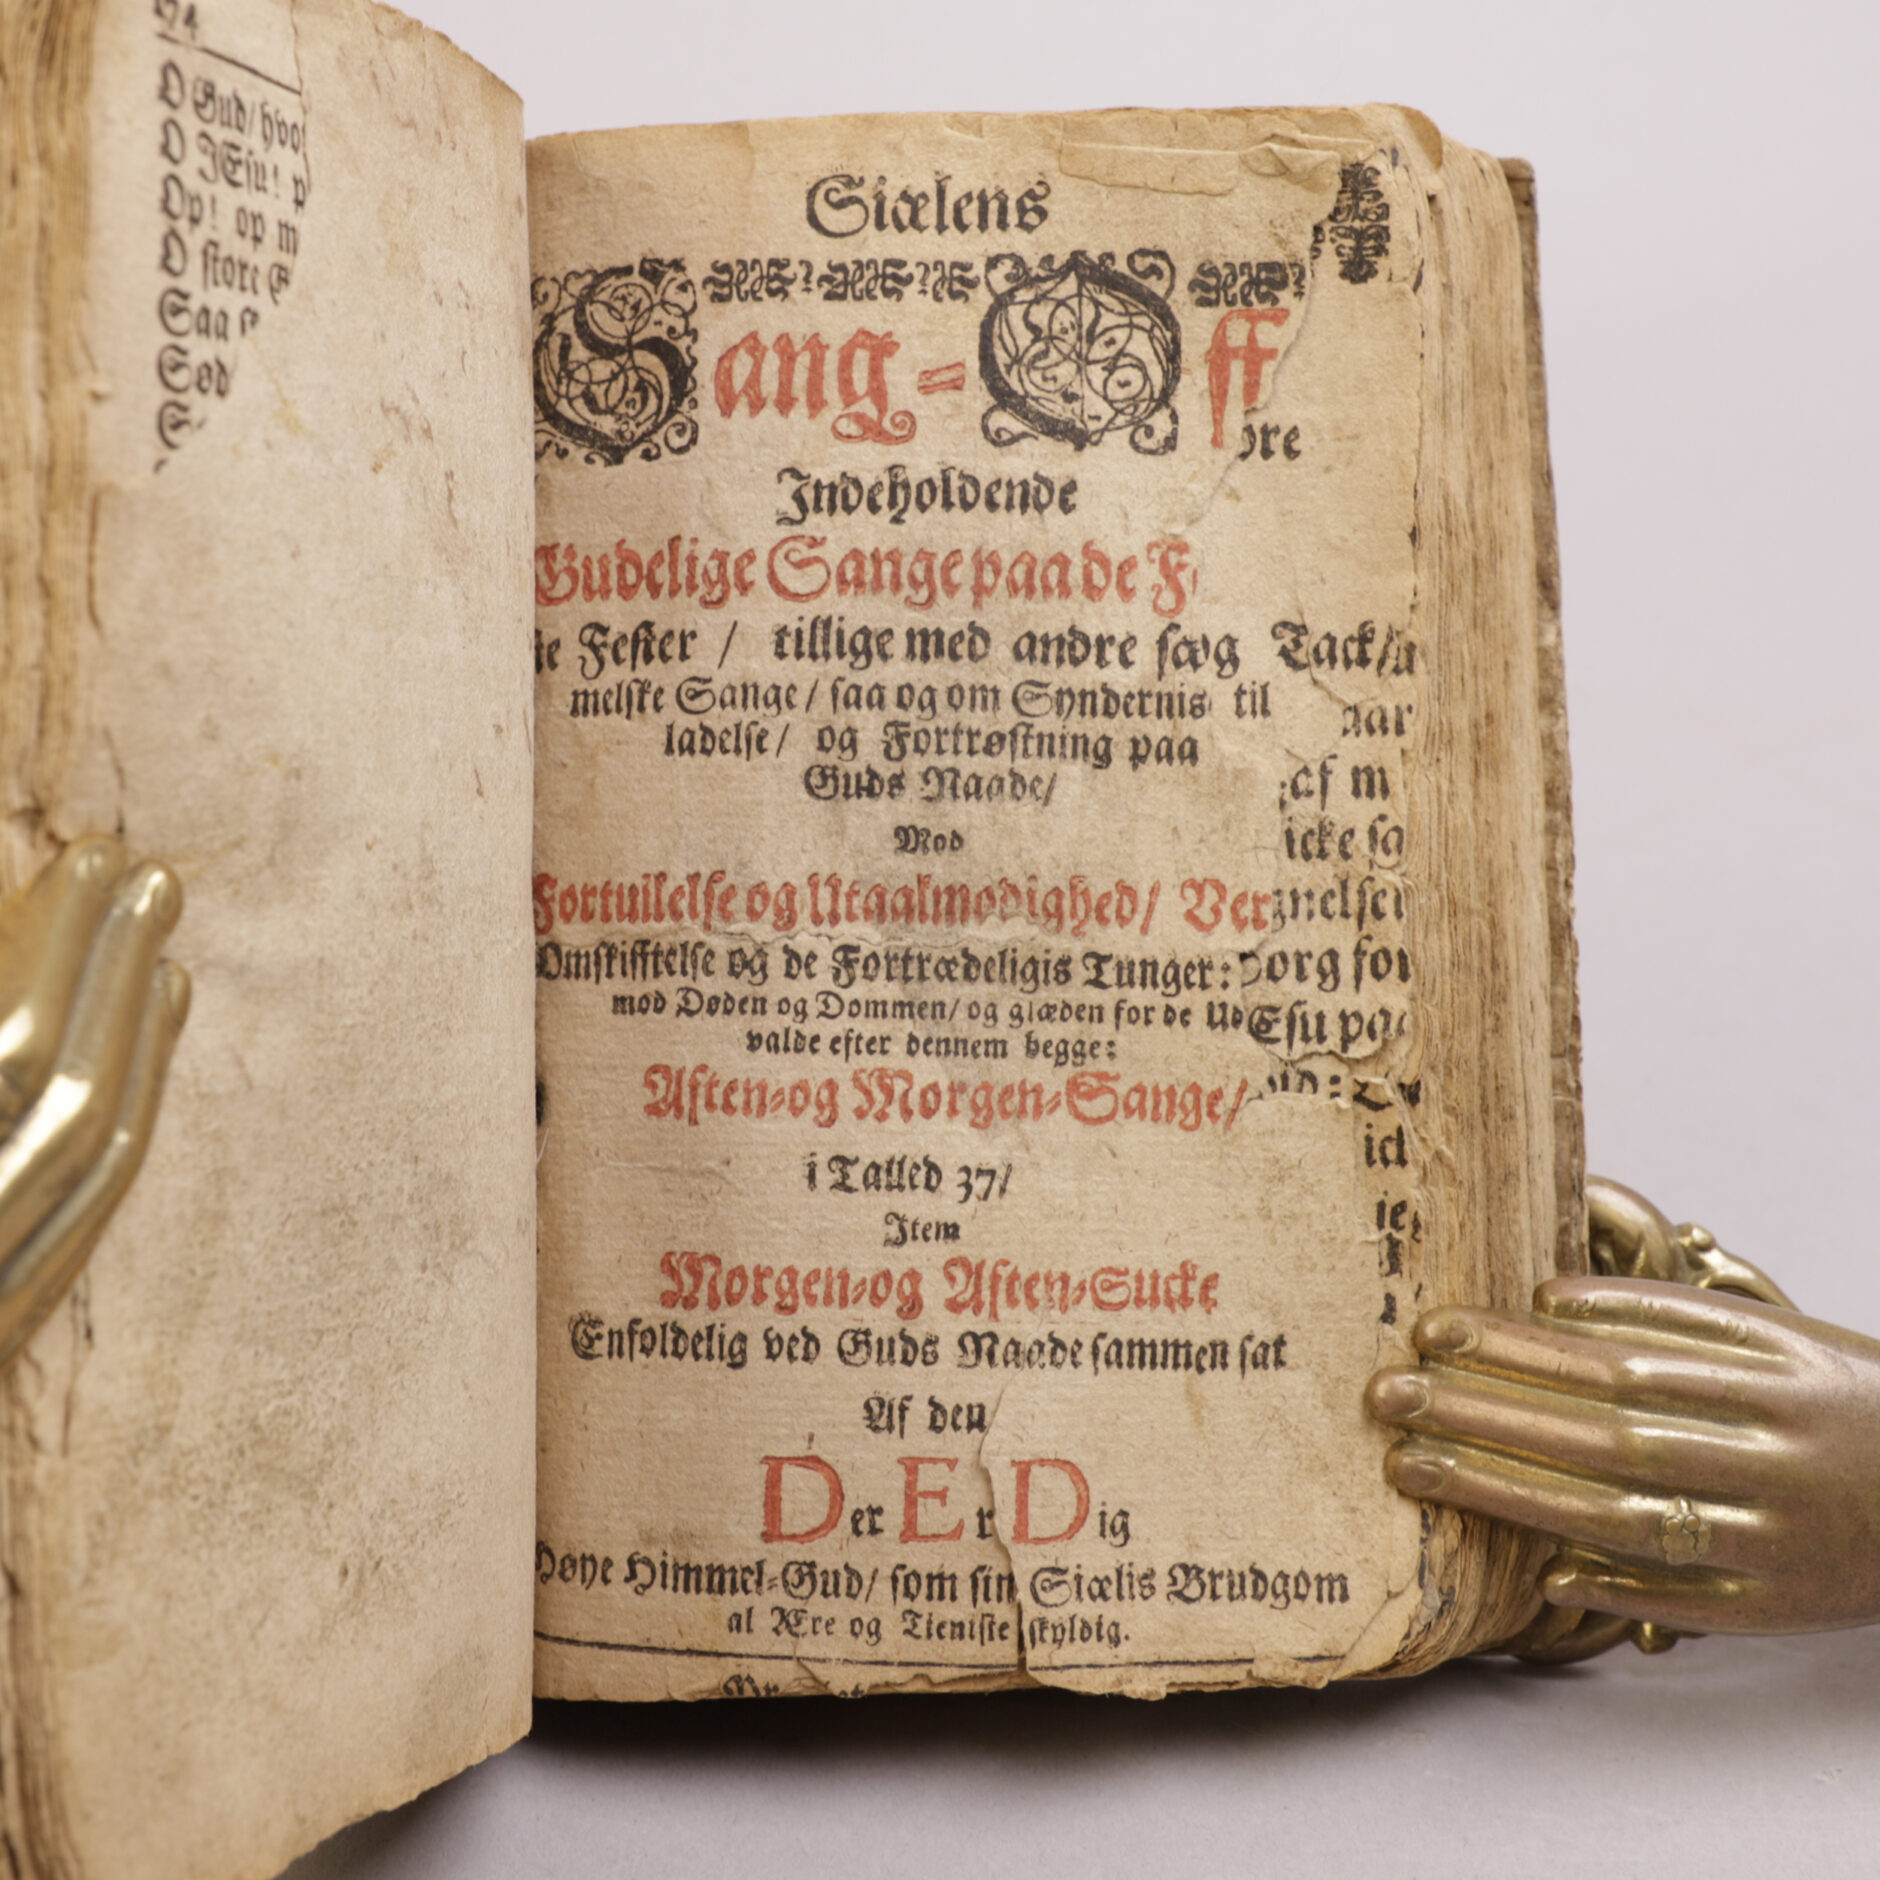 74
O Gud/ hvo
O JEsu! p
Op! op m
O store
Saa
Sød
Siælens
Sang-Off
ore
Indeholdende
Gudelige Sange paa de F
te Fester / tillige med andre sæ
og Tack/
melske Sange/ saa og om Syndernis
til
aar
ladelse/ og Fortrøstning paa
af m
Guds Naade/
icke sa
Mod
Fortvilelse og Utaalmodighed/ Ver
gnelsei
Omskifftelse og de Fortrædeligis Tunger:
org for
mod Døden og Dommen/ og glæden for de Ud
Esu paa
valde efter dennem begge:
Aften-og Morgen-Sange/
i Talled 37/
Item
Morgen-og Aften-Sucke
Enfoldelig ved Guds Naade sammen sat
Af den
Der Er Dig
Høye Himmel-Gud/ som sin Siælis Brudgom
al Ære og Tieniste skyldig.